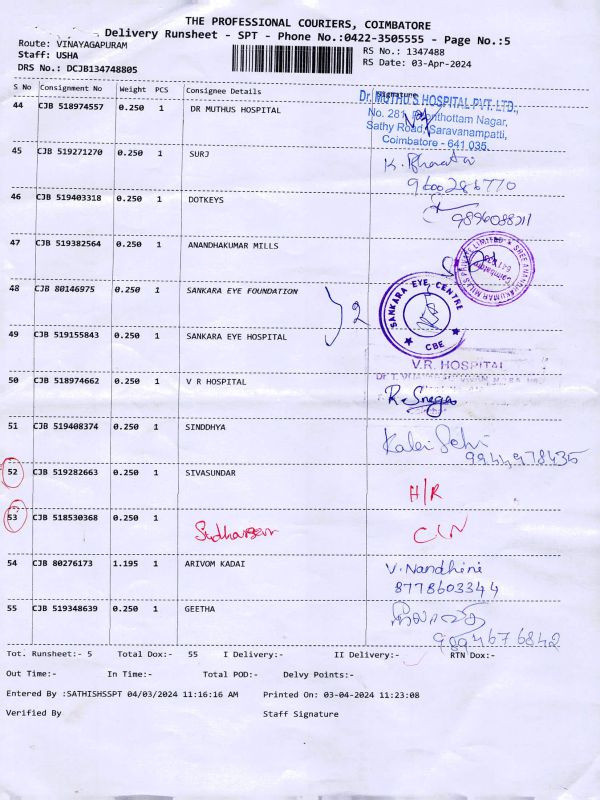 THE PROFESSIONAL COURIERS, COIMBATORE
Delivery Runsheet - SPT - Phone No.:0422-3505555 - Page No.:5
Route: VINAYAGAPURAM
RS No.: 1347488
Staff: USHA
RS Date: 03-Apr-2024
DRS No.: DCJB134748805
S No Consignment No Weight PCS Consignee Details Signature
44 CJB 518974557 0.250 1 DR MUTHUS HOSPITAL
Dr. MUTHU'S HOSPITAL PVT LTD.,
No. 281, Thottam Nagar,
Sathy Road, Saravanampatti,
Coimbatore - 641 035.
45 CJB 519271270 0.250 1 SURJ K. Bharathi
9600286770
46 CJB 519403318 0.250 1 DOTKEYS
9896088211
47 CJB 519382564 0.250 1 ANANDHAKUMAR MILLS
SREE ANANDHAKUMAR MILLS PRIVATE LIMITED
Coimbatore
48 CJB 80146975 0.250 1 SANKARA EYE FOUNDATION
} 2
SANKARA EYE CENTRE
CBE
49 CJB 519155843 0.250 1 SANKARA EYE HOSPITAL
V.R. HOSPITAL
50 CJB 518974662 0.250 1 V R HOSPITAL
R. Snega
51 CJB 519408374 0.250 1 SINDDHYA Kalai Selvi
9944978435
52 CJB 519282663 0.250 1 SIVASUNDAR
H/R
53 CJB 518530368 0.250 1 Sudharsan C/N
54 CJB 80276173 1.195 1 ARIVOM KADAI V. Nandhini
8778603344
55 CJB 519348639 0.250 1 GEETHA
9894676842
Tot. Runsheet:- 5 Total Dox:- 55 I Delivery:- II Delivery:- RTN Dox:-
Out Time:- In Time:- Total POD:- Delvy Points:-
Entered By :SATHISHSSPT 04/03/2024 11:16:16 AM Printed On:- 03-04-2024 11:23:08
Verified By Staff Signature